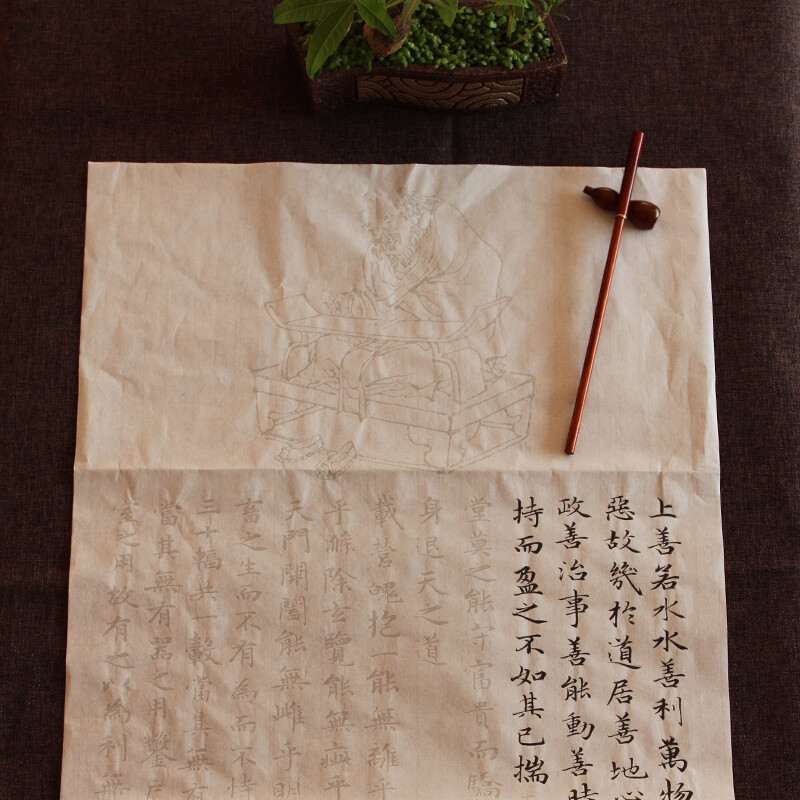 上善若水水善利萬物
惡故幾於道居善地心
政善治事善能動善時
持而盈之不如其已揣
堂莫之能守富貴而驕
身退天之道
載營魄抱一能無離乎
乎滌除玄覽能無疵乎
天門開闔能無雌乎明
畜之生而不有為而不恃
三十輻共一轂當其無有
當其無有器之用鑿戶
室之用故有之以為利無